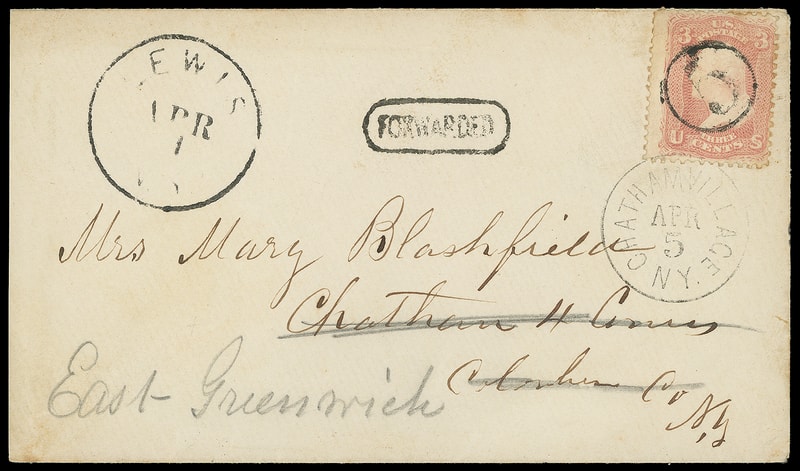 LEWIS
APR
1
FORWARDED
3 U.S. POSTAGE 3
U THREE CENTS S
5
CHATHAM VILLAGE
APR
5
N.Y.
Mrs Mary Blashfield
Chatham 4 Corners
Columbia Co
N.Y
East Greenwich